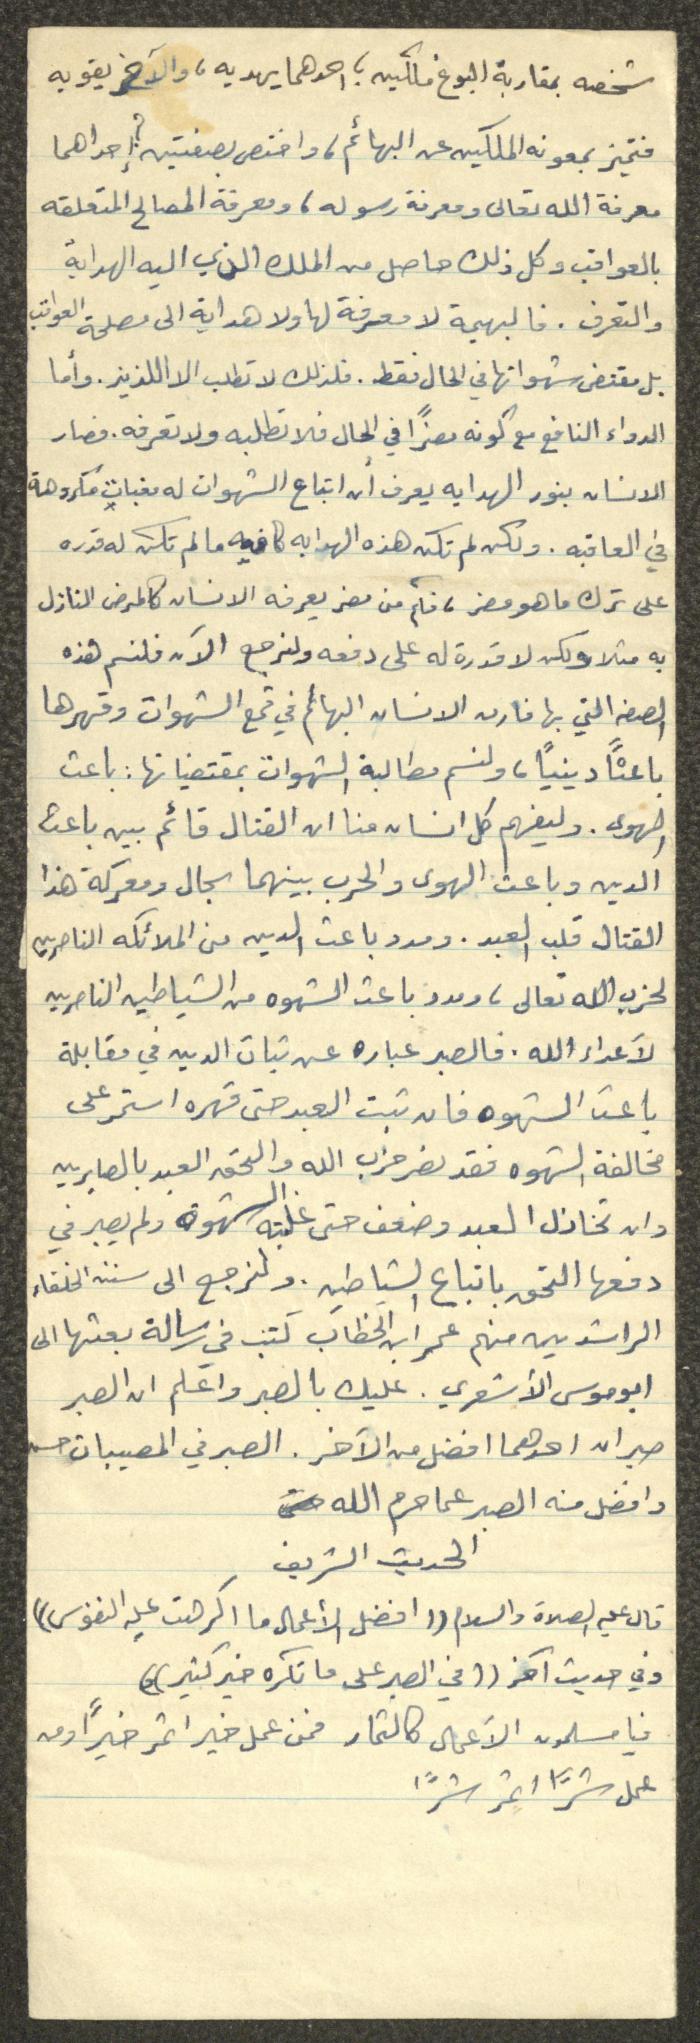 شخصه بمقاربة البلوغ ملكين ، احدهما يهديه ، والآخر يقويه
فتميز بمعونه الملكين عن البهائم ، واختص بصفتين ؟ إحداهما
معرفة الله تعالى ومعرفة رسوله ، ومعرفة المصالح المتعلقه
بالعواقب وكل ذلك حاصل من الملك الذي اليه الهداية
والتعرف . فالبهيمة لا معرفة لها ولا هداية الى مصلحة العواقب
بل مقتضى شهواتها في الحال فقط . فلذلك لا تطلب الا اللذيذ . وأما
الدواء النافع مع كونه مضرًا في الحال فلا تطلبه ولا تعرفه . فصار
الانسان بنور الهدايه يعرف أن اتباع الشهوات له مغباتٍ مكروهة
في العاقبه . ولكن لم تكن هذه الهدايه كافيه ما لم تكن له قدره
على ترك ما هو مضر ، فكم من مضر يعرفه الانسان كالمرض النازل
به مثلا ولكن لا قدرة له على دفعه ولنرجع الآن فلنسم هذه
الصفه التي بها فارق الانسان البهائم في قمع الشهوات وقهرها
باعثًا دينيًا ، ولنسم مطالبة الشهوات بمقتضياتها : باعث
الهوى . وليفهم كل انسان منا ان القتال قائم بين باعث
الدين وباعث الهوى والحرب بينهما سجال ومعركة هذا
القتال قلب العبد . ومدد باعث الدين من الملائكه الناصرين
لحزب الله تعالى ، ومدد باعث الشهوه من الشياطين الناصرين
لأعداء الله . فالصبر عباره عن ثبات الدين في مقابلة
باعث الشهوه فان ثبت العبد حتى قهره استمر على
مخالفة الشهوه فقد نصر حزب الله والتحق العبد بالصابرين
وان تخاذل العبد وضعف حتى غلبته الشهوة ولم يصبر في
دفعها التحق باتباع الشياطين . ولنرجع الى سنن الخلفاء
الراشدين منهم عمر ابن الخطاب كتب في رسالة بعثها الى
ابو موسى الأشعري . عليك بالصبر واعلم ان الصبر
صبران احدهما افضل من الآخر . الصبر في المصيبات حسن
وافضل منه الصبر عما حرم الله
الحديث الشريف
قال عليه الصلاة والسلام (( افضل الأعمال ما اكرهت عليه النفوس ))
وفي حديث آخر (( في الصبر على ما تكره خير كثير ))
فيا مسلمون الأعمال كالثمار فمن عمل خيرا اثمر خيرًا ومن
عمل شرًا اثمر شرًا